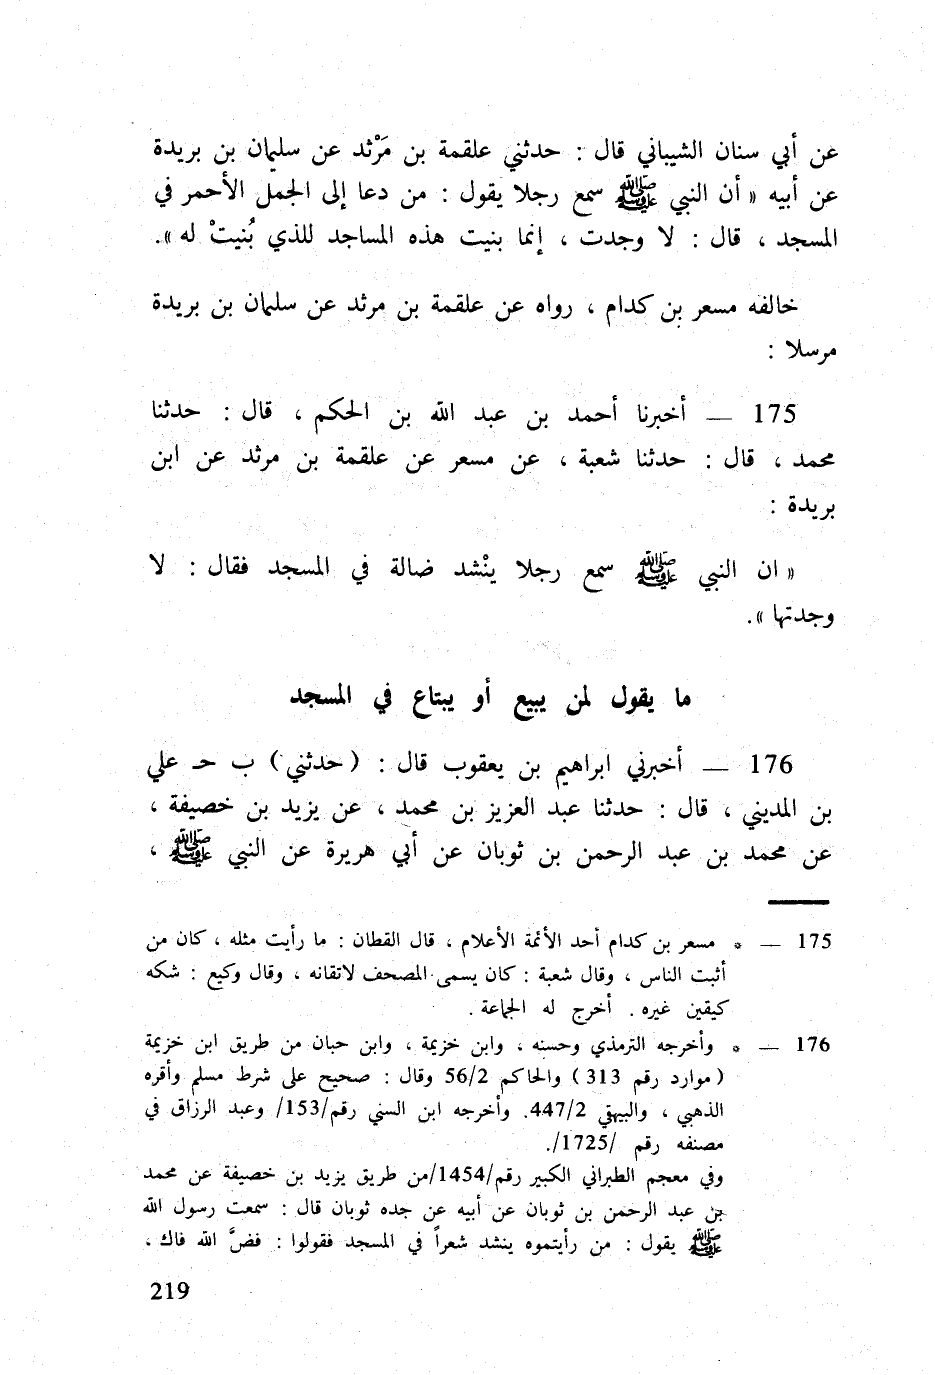 عن أبي سنان الشيباني قال : حدثني علقمة بن مَرْثد عن سليمان بن بريدة
عن أبيه « أن النبي ﷺ سمع رجلا يقول : من دعا إلى الجمل الأحمر في
المسجد ، قال : لا وجدت ، إنما بنيت هذه المساجد للذي بُنيتْ له ».
خالفه مسعر بن كدام ، رواه عن علقمة بن مرثد عن سليمان بن بريدة
مرسلا :
175 — أخبرنا أحمد بن عبد الله بن الحكم ، قال : حدثنا
محمد ، قال : حدثنا شعبة ، عن مسعر عن علقمة بن مرثد عن ابن
بريدة :
« ان النبي ﷺ سمع رجلا ينْشد ضالة في المسجد فقال : لا
وجدتها ».
ما يقول لمن يبيع أو يبتاع في المسجد
176 — أخبرني ابراهيم بن يعقوب قال : (حدثني) ب حـ علي
بن المديني ، قال : حدثنا عبد العزيز بن محمد ، عن يزيد بن خصيفة ،
عن محمد بن عبد الرحمن بن ثوبان عن أبي هريرة عن النبي ﷺ ،
175 — * مسعر بن كدام أحد الأئمة الأعلام ، قال القطان : ما رأيت مثله ، كان من
أثبت الناس ، وقال شعبة : كان يسمى المصحف لاتقانه ، وقال وكيع : شكه
كيقين غيره . أخرج له الجماعة .
176 — * وأخرجه الترمذي وحسنه ، وابن خزيمة ، وابن حبان من طريق ابن خزيمة
( موارد رقم 313 ) والحاكم 56/2 وقال : صحيح على شرط مسلم وأقره
الذهبي ، والبيهقي 447/2. وأخرجه ابن السني رقم/153/ وعبد الرزاق في
مصنفه رقم /1725/.
وفي معجم الطبراني الكبير رقم/1454/من طريق يزيد بن خصيفة عن محمد
بن عبد الرحمن بن ثوبان عن أبيه عن جده ثوبان قال : سمعت رسول الله
ﷺ يقول : من رأيتموه ينشد شعراً في المسجد فقولوا : فضَّ الله فاك ،
219